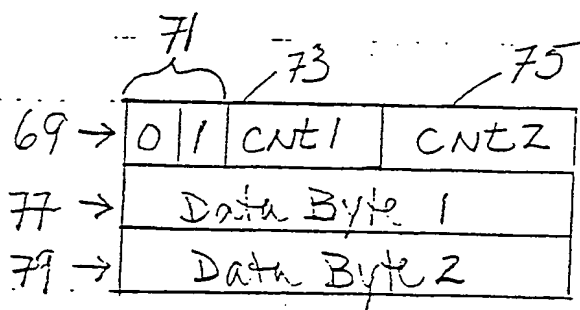 71
73 75
69 → 0 1 CNt1 CNt2
77 → Data Byte 1
79 → Data Byte 2